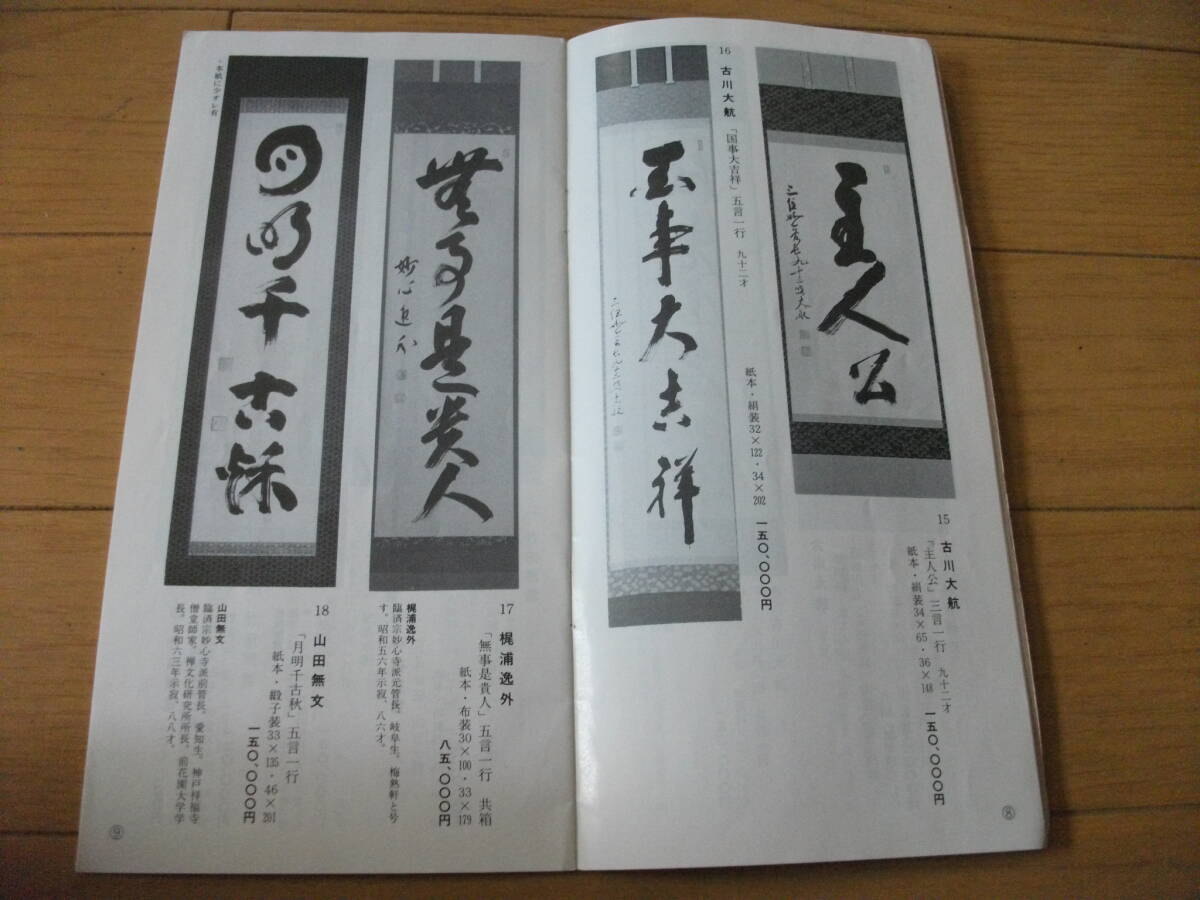 主人公
15 古川大航
「主人公」三言一行 九十二才
紙本・絹装34×65・36×148
一五〇、〇〇〇円
16 古川大航
「国事大吉祥」五言一行 九十二才
紙本・絹装32×122・34×202
一五〇、〇〇〇円
事大吉祥
⑧
無事是貴人
17 梶浦逸外
「無事是貴人」五言一行 共箱
紙本・布装30×100・33×179
八五、〇〇〇円
梶浦逸外
臨済宗妙心寺派元管長。岐阜生。梅熟軒と号
す。昭和五六年示寂、八六才。
月明千古秋
・本紙にヲオレ有
18 山田無文
「月明千古秋」五言一行
紙本・緞子装33×135・46×201
一五〇、〇〇〇円
山田無文
臨済宗妙心寺派前管長。愛知生。神戸祥福寺
僧堂師家、禅文化研究所所長、前花園大学学
長。昭和六三年示寂、八八才。
⑨